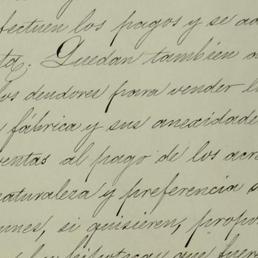 fectuen los pagos y se ad
ta. Quedan tambien a
los deudores para vender l
fábrica y sus anexidade
entas al pago de los acre
naturaleza y preferencia s
nes, si quisieren, propo
hipotecas que fuer